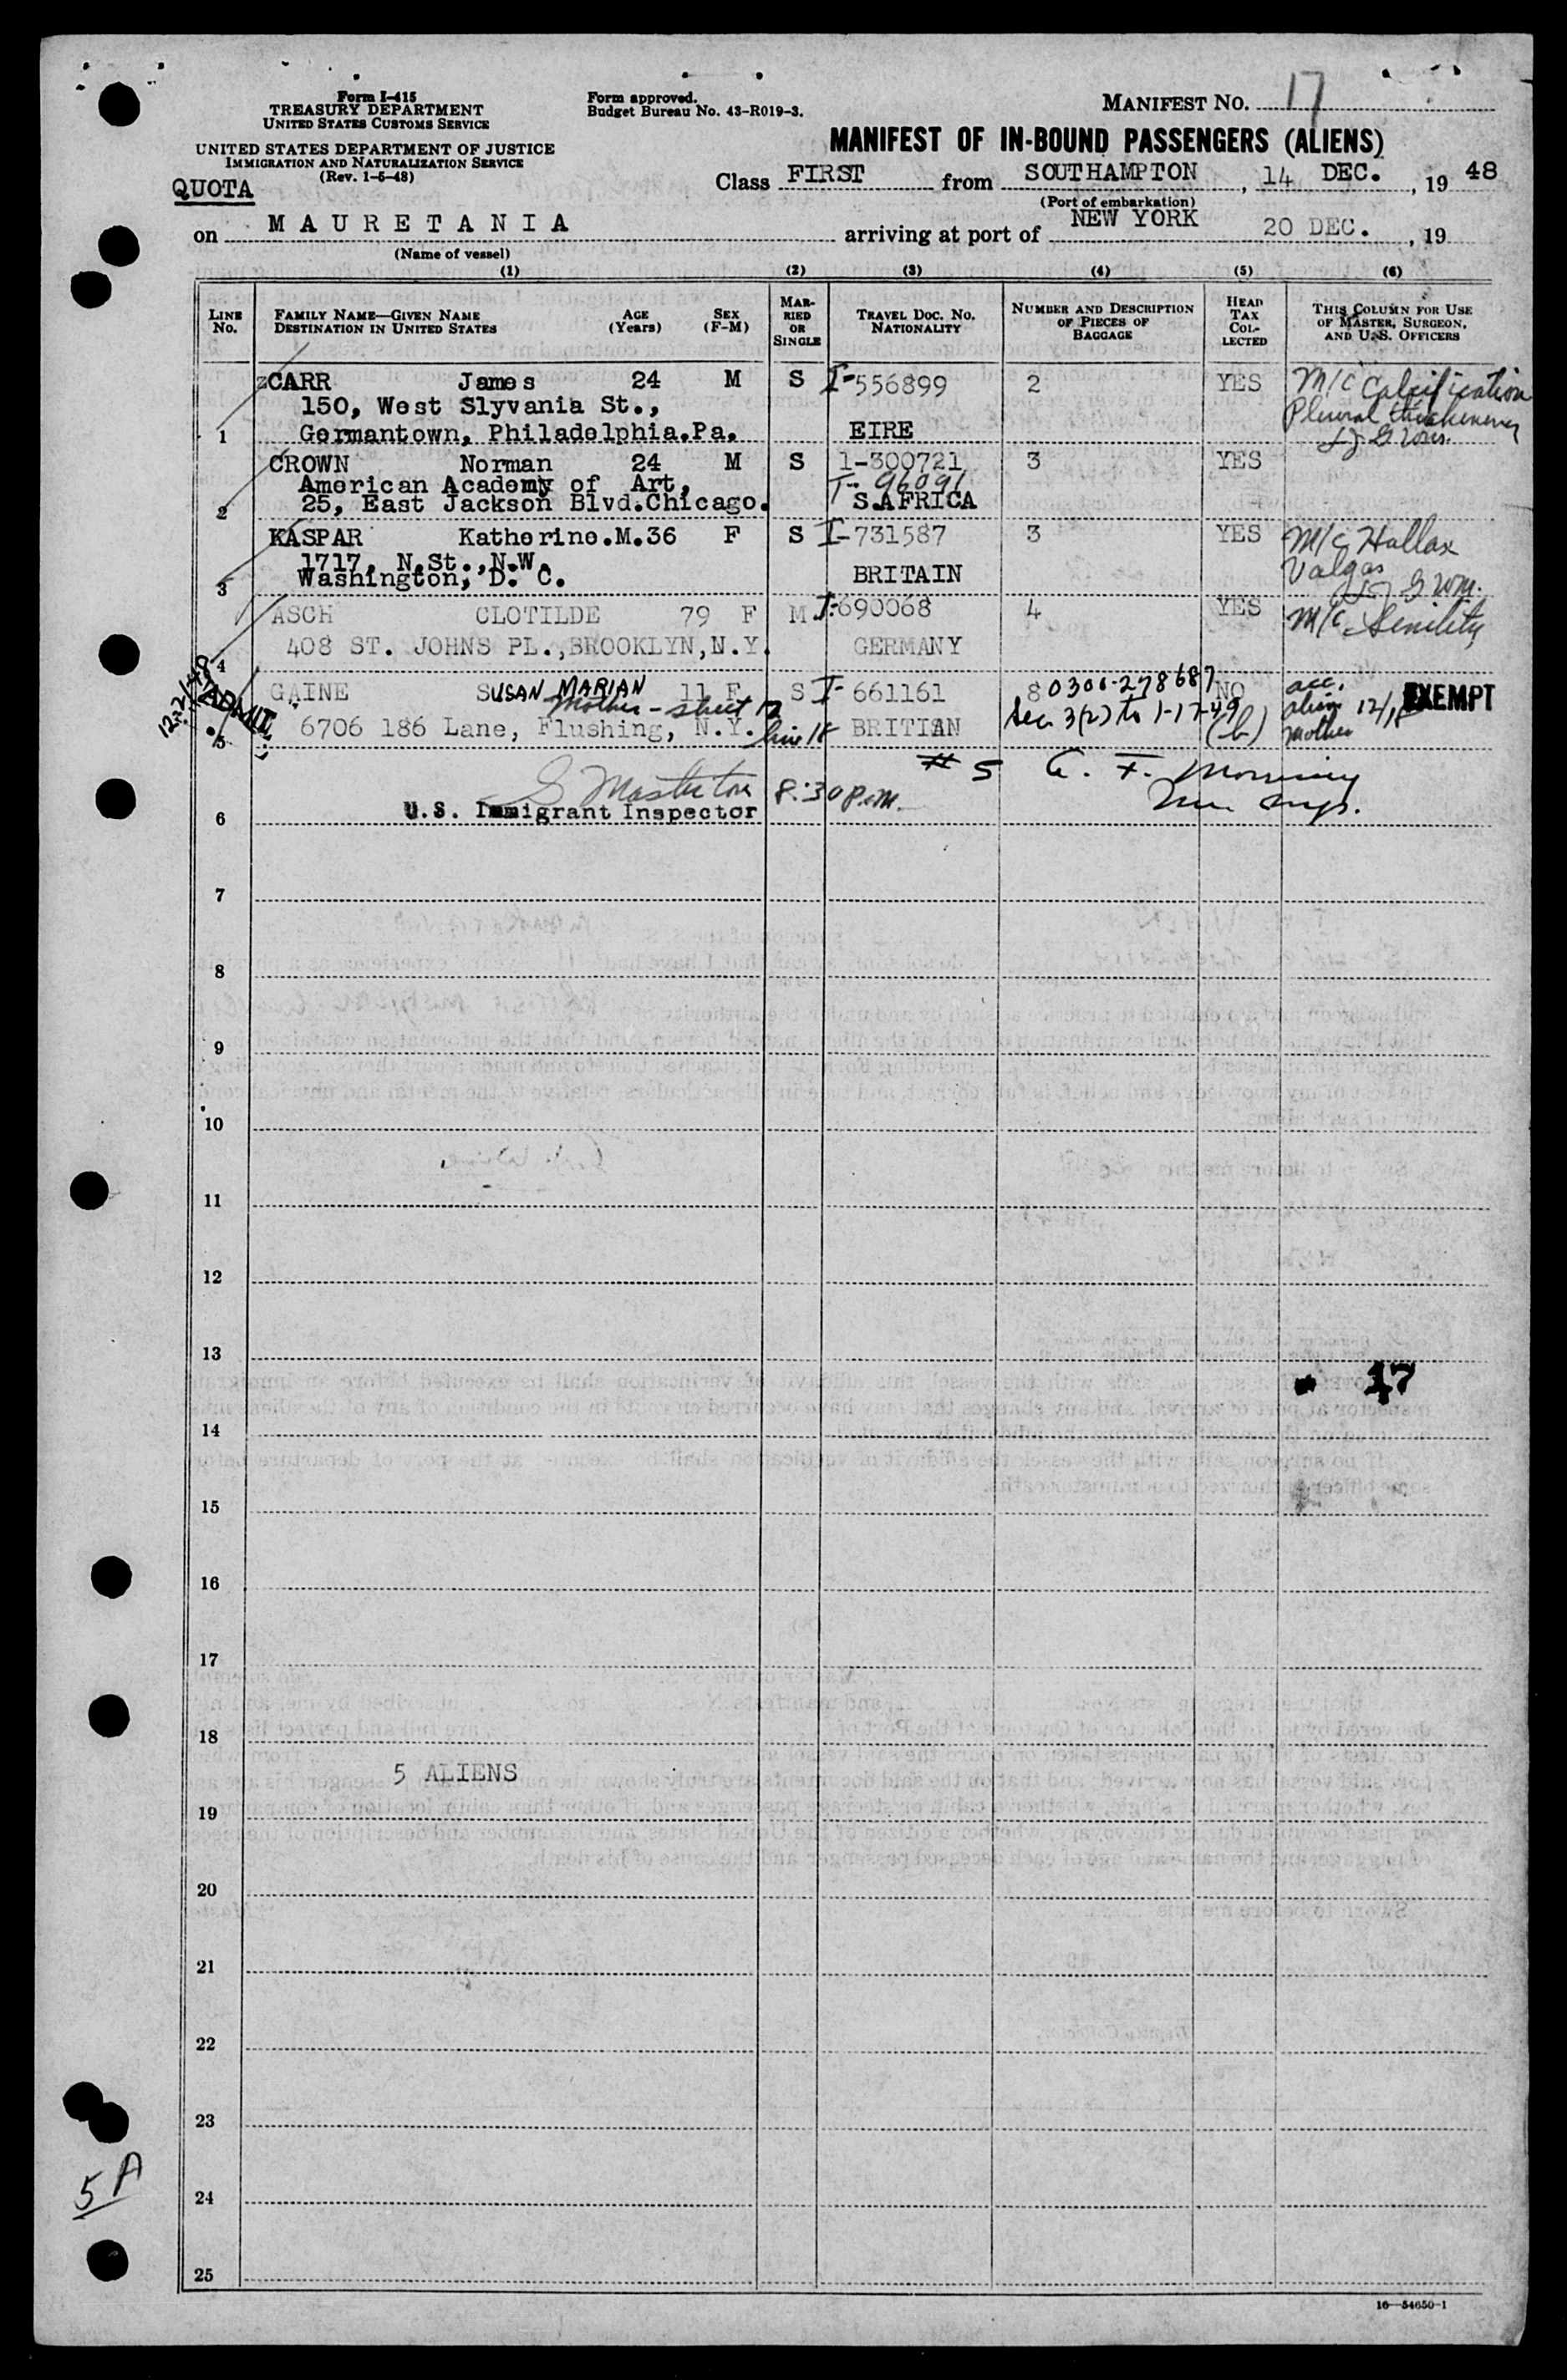 Form I-415
TREASURY DEPARTMENT
UNITED STATES CUSTOMS SERVICE
UNITED STATES DEPARTMENT OF JUSTICE
IMMIGRATION AND NATURALIZATION SERVICE
(Rev. 1-5-48)
QUOTA
Form approved.
Budget Bureau No. 43-R019-3.
MANIFEST NO. 17
MANIFEST OF IN-BOUND PASSENGERS (ALIENS)
Class FIRST from SOUTHAMPTON, 14 DEC., 19 48
(Port of embarkation)
on MAURETANIA arriving at port of NEW YORK 20 DEC., 19
(Name of vessel)
(1) (2) (3) (4) (5) (6)
LINE No.
FAMILY NAME—GIVEN NAME
DESTINATION IN UNITED STATES
AGE (Years)
SEX (F-M)
MARRIED OR SINGLE
TRAVEL DOC. NO. NATIONALITY
NUMBER AND DESCRIPTION OF PIECES OF BAGGAGE
HEAD TAX COLLECTED
THIS COLUMN FOR USE OF MASTER, SURGEON, AND U.S. OFFICERS
CARR James 24 M S I-556899 2 YES M/C Calcification
150, West Slyvania St., Pleural thickening
1 Germantown, Philadelphia.Pa. EIRE
CROWN Norman 24 M S 1-300721 3 YES
American Academy of Art, T- 96091
2 25, East Jackson Blvd.Chicago. S.AFRICA
KASPAR Katherine.M.36 F S I-731587 3 YES M/C Hallax
1717, N.St.,N.W. Valgas
3 Washington, D. C. BRITAIN
ASCH CLOTILDE 79 F M I-690068 4 YES M/C Senility
4 408 ST. JOHNS PL.,BROOKLYN,N.Y. GERMANY
GAINE SUSAN MARIAN 11 F S I- 661161 8 0300-278687 NO acc. EXEMPT
Mother - sheet 12 Sec 3(2) to 1-17-49 alien 12/18
5 6706 186 Lane, Flushing, N.Y. line 18 BRITIAN (b) mother
12/22/48 ADMIT
#5
6 U.S. Immigrant Inspector 8:30 P.M.
7
8
9
10
11
12
13
17
14
15
16
17
18
5 ALIENS
19
20
21
22
23
5A
24
25
16—54650-1